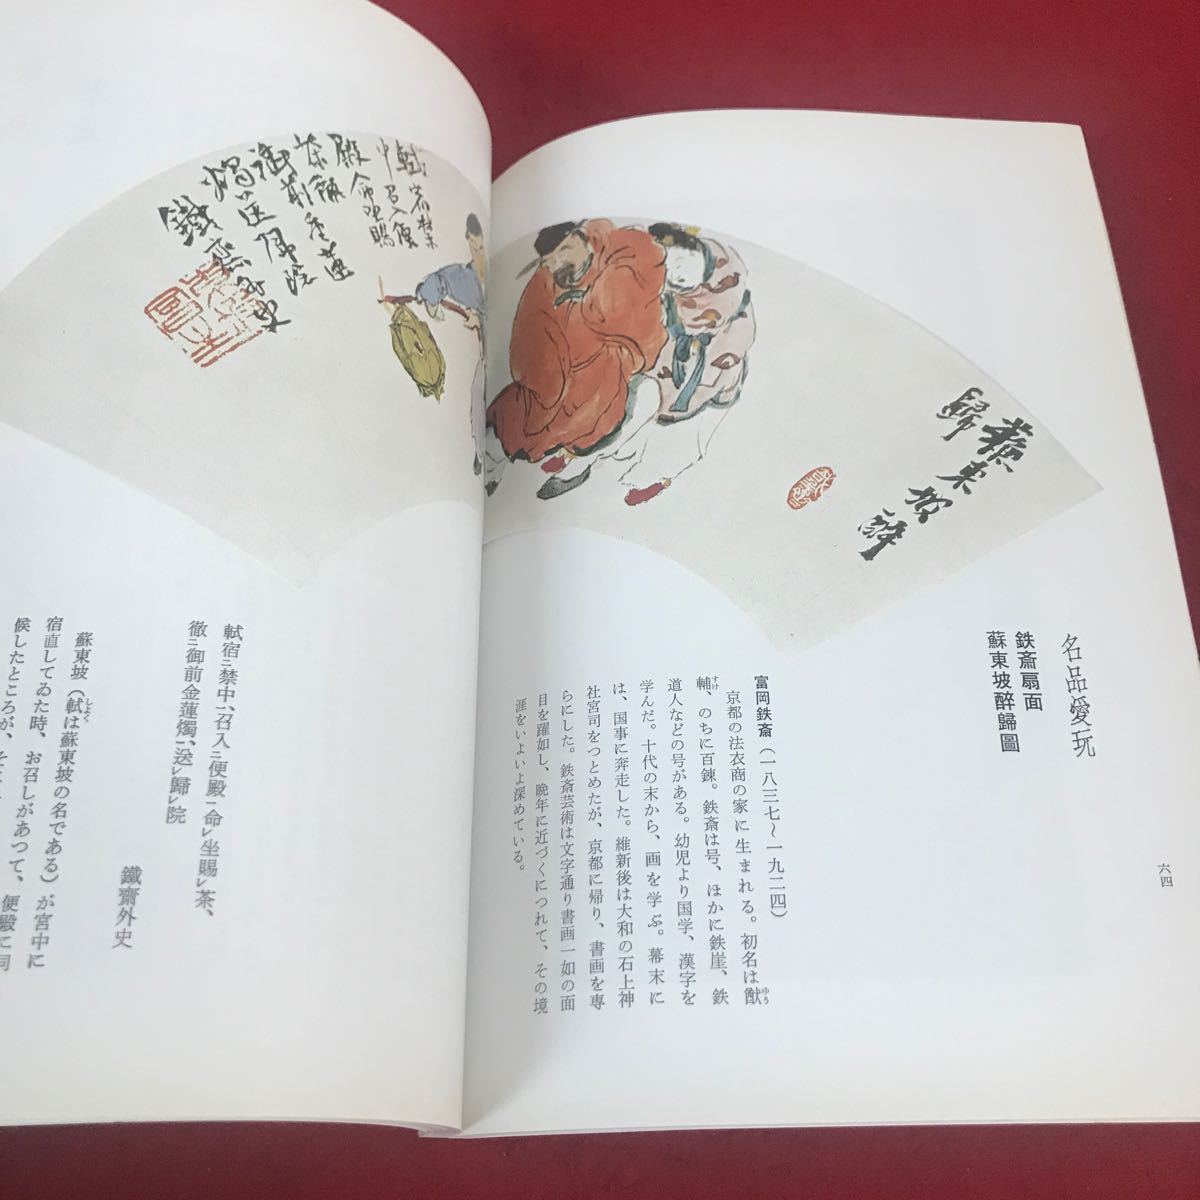 名品愛玩
鉄斎扇面
蘇東坡醉歸圖
六四
蘇東坡醉
歸
富岡鉄斎（一八三七〜一九二四）
京都の法衣商の家に生まれる。初名は猷
ゆう
輔、のちに百錬。鉄斎は号、ほかに鉄崖、鉄
すけ
道人などの号がある。幼児より国学、漢字を
学んだ。十代の末から、画を学ぶ。幕末に
は、国事に奔走した。維新後は大和の石上神
社宮司をつとめたが、京都に帰り、書画を専
らにした。鉄斎芸術は文字通り書画一如の面
目を躍如し、晩年に近づくにつれて、その境
涯をいよいよ深めている。
軾宿禁
中召入便
殿命坐賜
茶徹
御前金蓮
燭送歸院
鐵斎外史
軾宿ニ禁中ニ、召入ニ便殿ニ命レ坐賜レ茶、
徹ニ御前金蓮燭ニ、送レ歸レ院
鐵齋外史
蘇東坡（軾は蘇東坡の名である）が宮中に
しよく
宿直してゐた時、お召しがあつて、便殿に伺
候したところが、そ